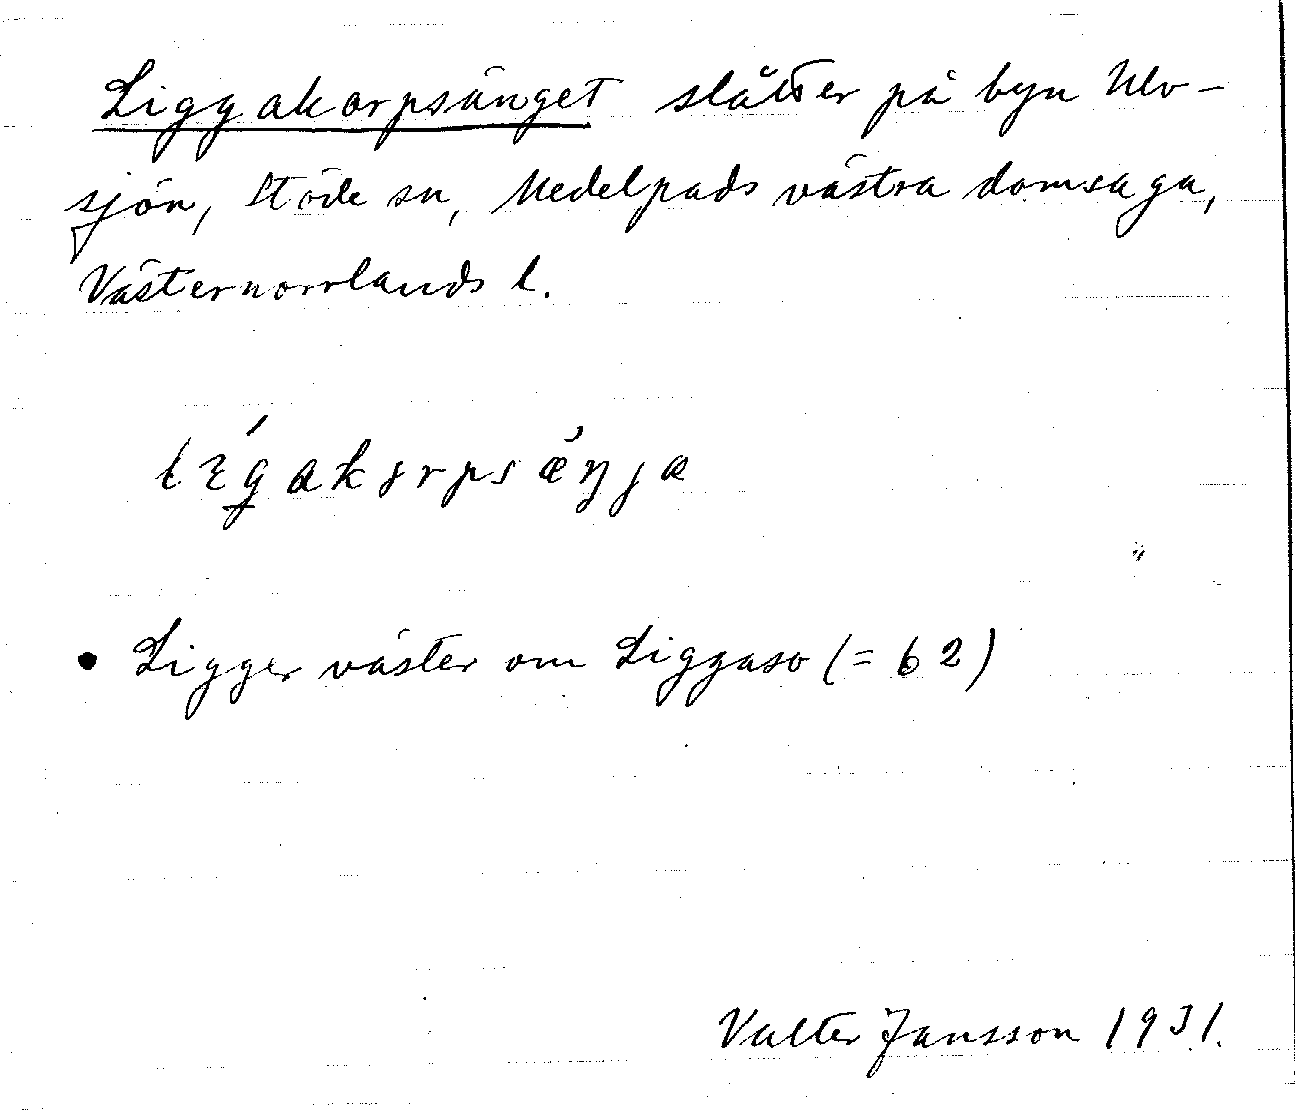 Liggakorpsänget slåtter på byn Ulv-
sjön, Stöde sn, Medelpads västra domsaga,
Västernorrlands l.
Ligger väster om Liggaso (= 62)
Valter Jansson 1931.